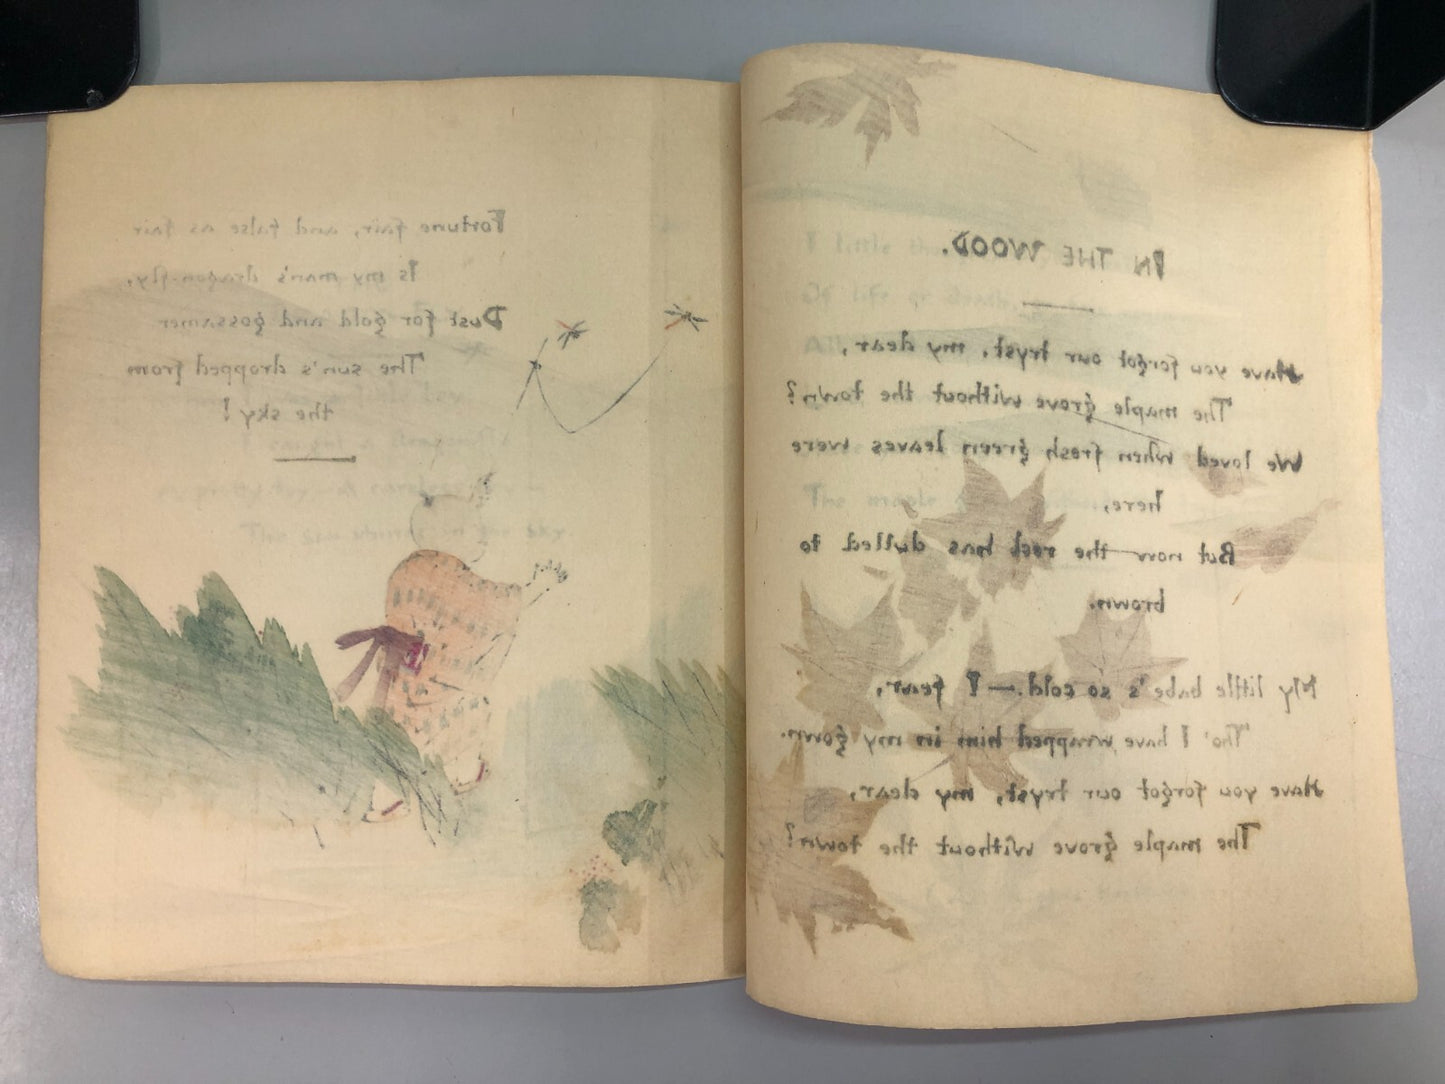 Fortune fair, and false as fair
Is my man's dragon-fly,
Dust for gold and gossamer
The sun's dropped from
the sky!
I caught a dragonfly
The sun shines in the sky.
IN THE WOOD.
Have you forgot our tryst, my dear,
The maple grove without the town?
We loved when fresh green leaves were
here,
But now the red has dulled to
brown.
My little babe's so cold.—I fear,
Tho' I have wrapped him in my gown.
Have you forgot our tryst, my dear,
The maple grove without the town?
I little
Of life or death,
All
The maple